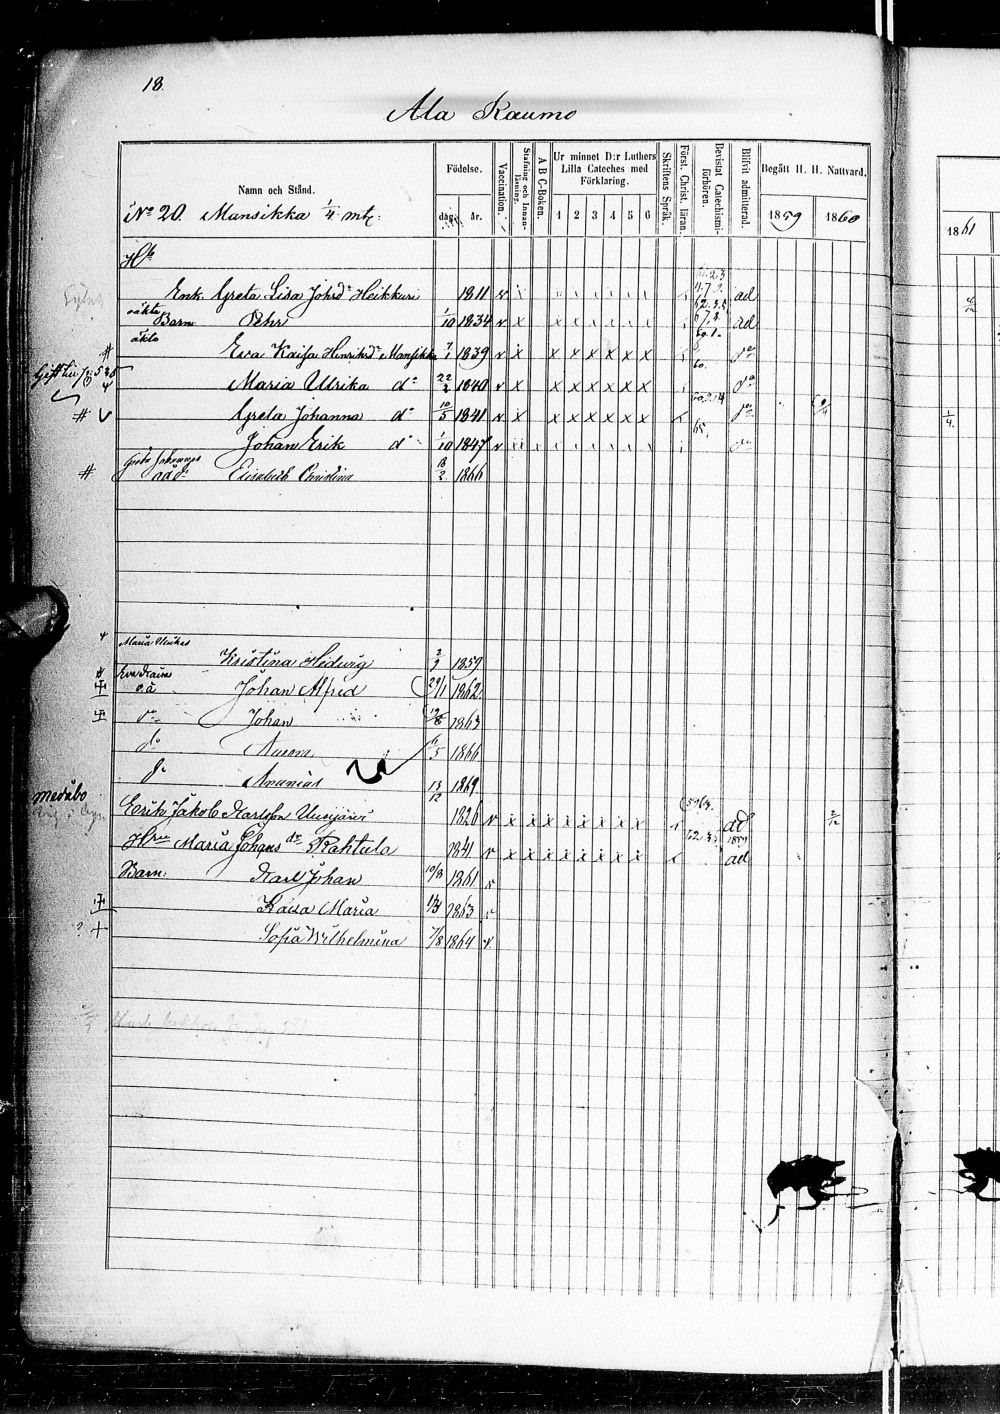 18.
Ala Raumo
Namn och Stånd.
Födelse.
dag.
år.
Vaccination.
Stafning och Innan-läsning.
A B C-Boken.
Ur minnet D:r Luthers Lilla Cateches med Förklaring.
1 2 3 4 5 6
Skriftens Språk.
Först. Christ. läran.
Bevistat Catechismi-förhören.
Blifvit admitterad.
Begått H. H. Nattvard.
1859 1860
1861
No 20. Mansikka 1/4 mtl:
Enk. Greta Lisa Johsdr Heikkuri 1811 v ad
äkta Barn Pehr 1/10 1834 v x x x ad
äkta
Eva Kaisa Henriksdr Mansikka 7/1 1839 v x x x x x x x do
Maria Ulrika do 22/2 1840 v x x x x x x x do
Greta Johanna do 10/5 1841 v x x x x x x x do
Johan Erik do 1/10 1847 v
Greta Johannas oä dr Elisabeth Christina 18/2 1866
Maria Ulrikas Kristina Hedwig 2/9 1859
Eva Kaisas o.ä Johan Alfred 29/1 1862
do Johan 1863
do Aurora 1866
do Ananias 13/12 1869
medåbo
Erik Jakob Karlsson Uusijärvi 1826 v x x x x x x x x ad 2/12
Hru Maria Johans dr Rahtula 1841 v x x x x x x x x ad
Barn: Karl Johan 10/3 1861 v
Kaisa Maria 1863 v
Sofia Wilhelmina 7/8 1864 v.